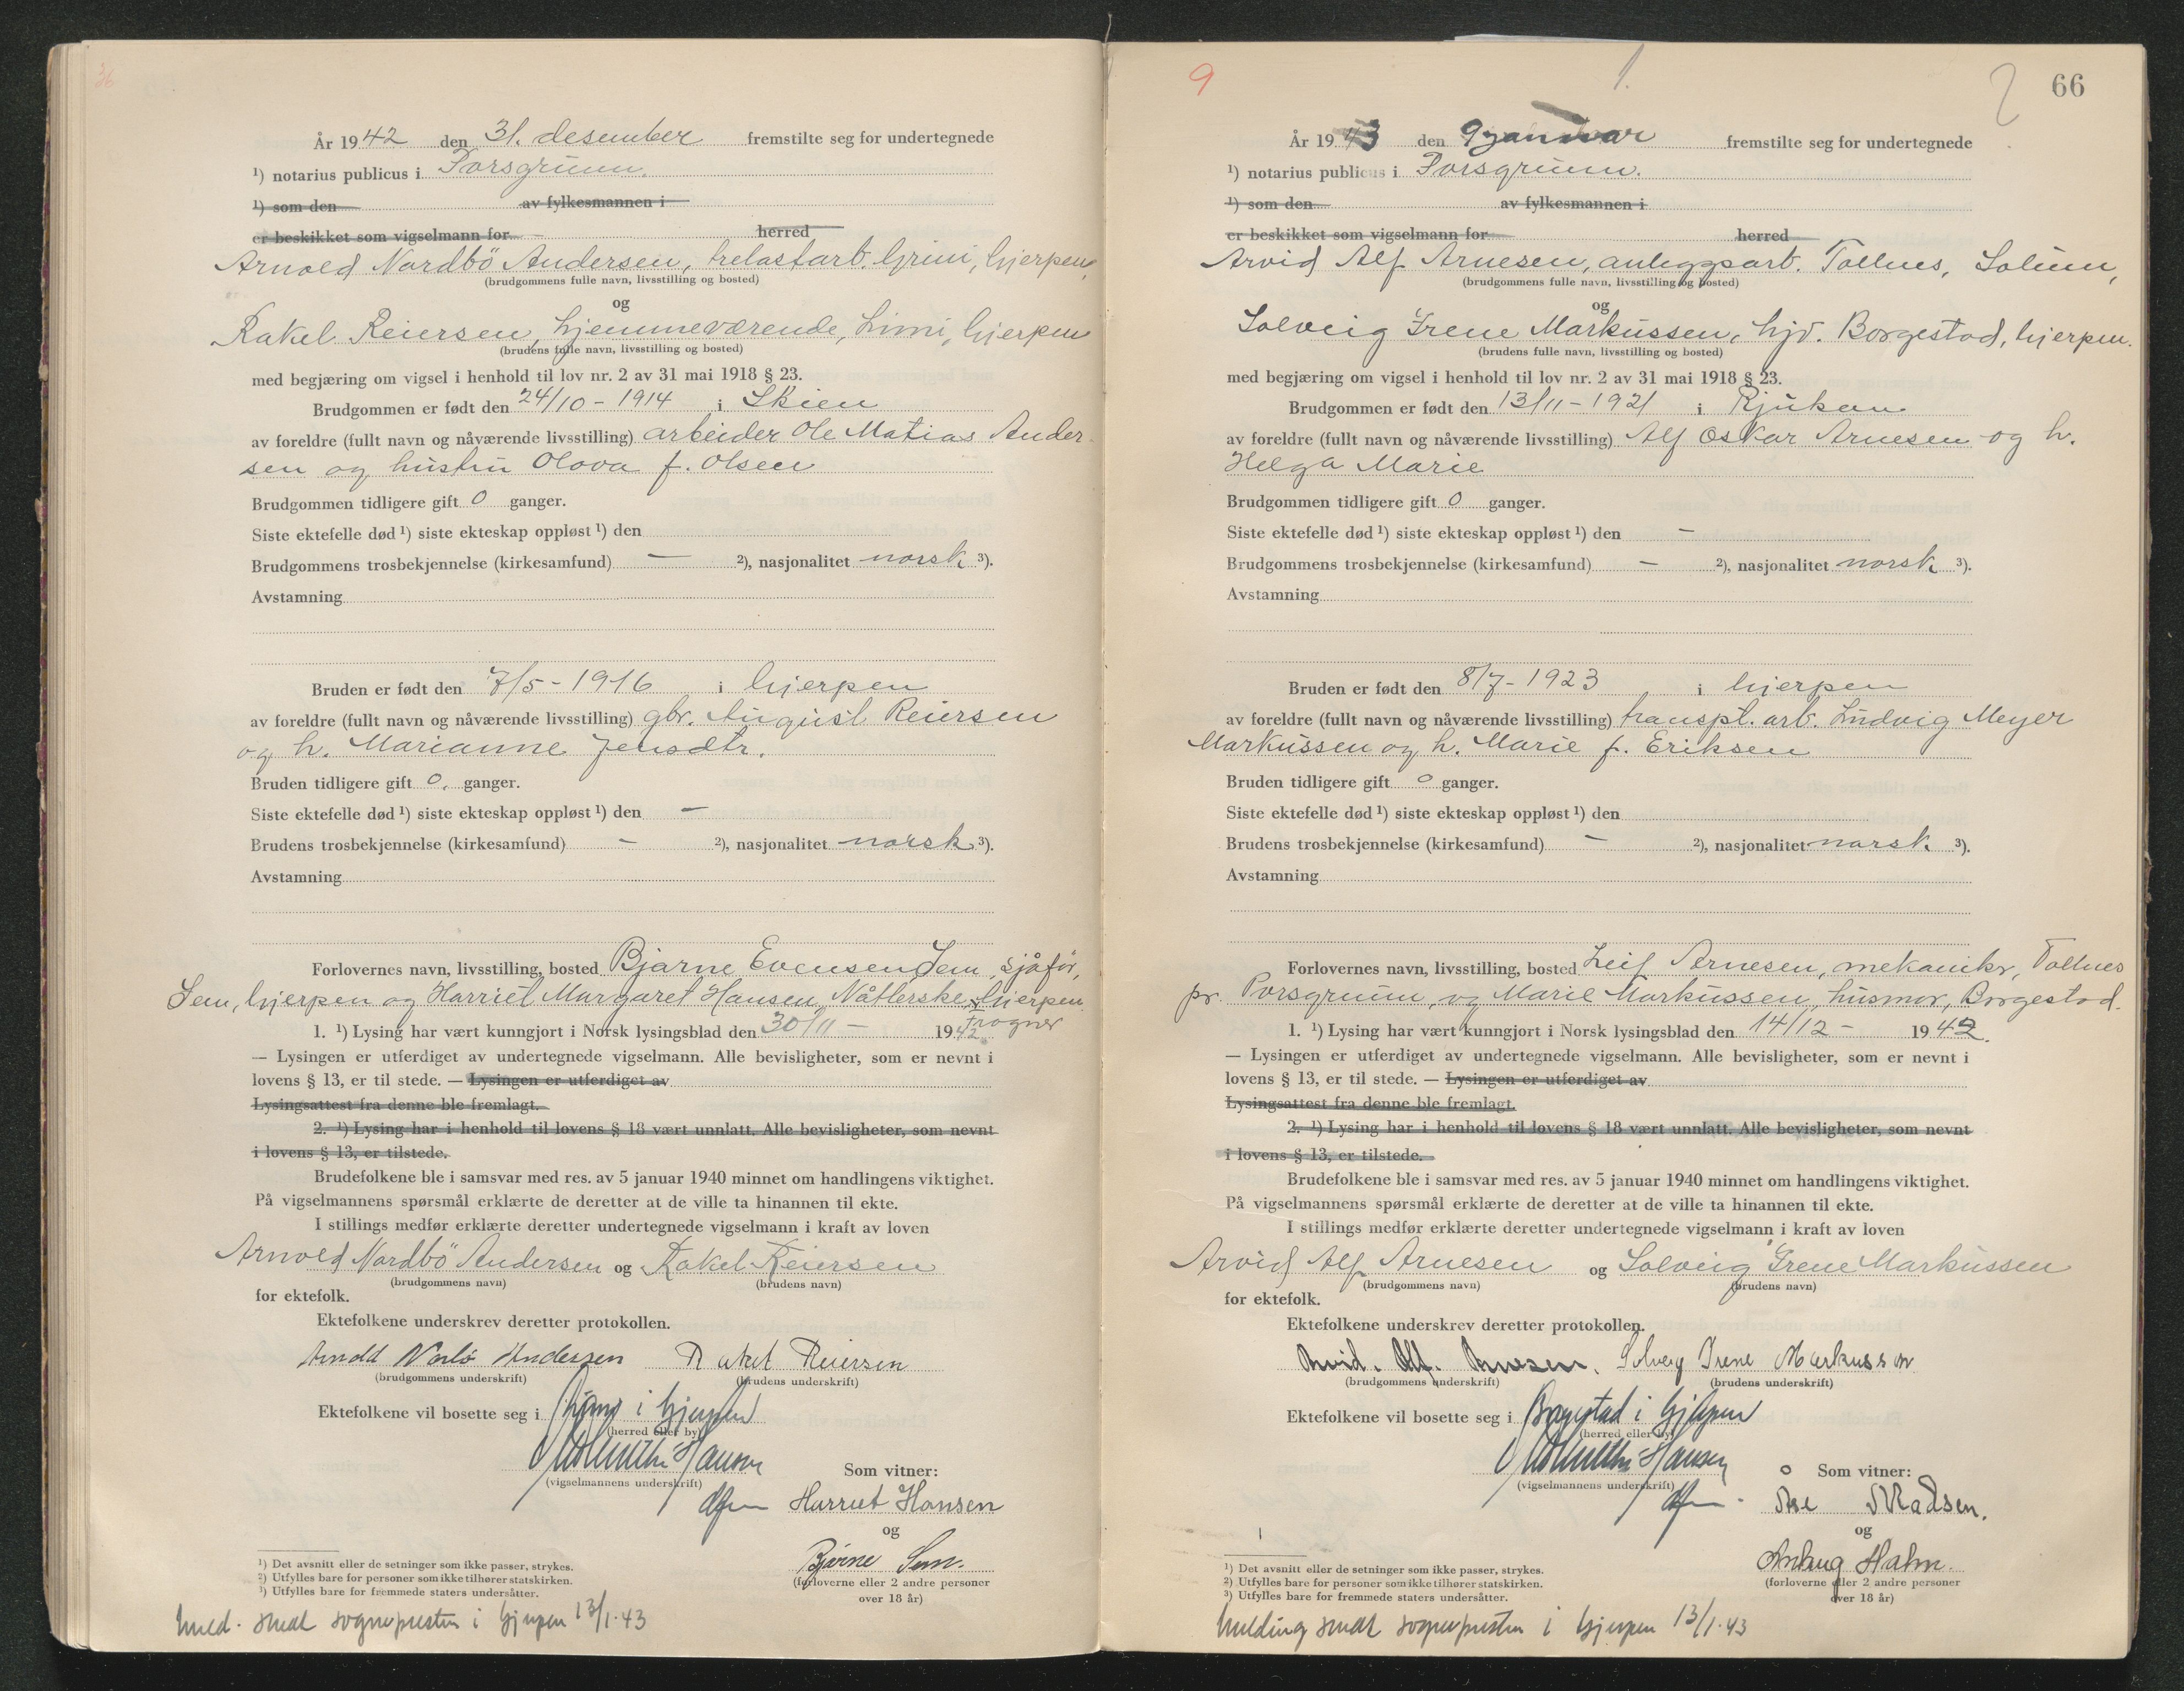 36
År 1942 den 31. desember fremstilte seg for undertegnede
¹) notarius publicus i Porsgrunn.
¹) som den av fylkesmannen i
er beskikket som vigselmann for herred
Arnold Nordbö Andersen, trelastarb. Grini, Gjerpen,
(brudgommens fulle navn, livsstilling og bosted)
og
Rakel Reiersen, hjemmeværende, Limi, Gjerpen
(brudens fulle navn, livsstilling og bosted)
med begjæring om vigsel i henhold til lov nr. 2 av 31 mai 1918 § 23.
Brudgommen er født den 24/10 - 1914 i Skien
av foreldre (fullt navn og nåværende livsstilling) arbeider Ole Matias Ander-
sen og hustru Olova f. Olsen
Brudgommen tidligere gift 0 ganger.
Siste ektefelle død ¹) siste ekteskap oppløst ¹) den
Brudgommens trosbekjennelse (kirkesamfund) — ²), nasjonalitet norsk ³).
Avstamning
Bruden er født den 7/5 - 1916 i Gjerpen
av foreldre (fullt navn og nåværende livsstilling) gbr. August Reiersen
og h. Marianne Jensdtr.
Bruden tidligere gift 0. ganger.
Siste ektefelle død ¹) siste ekteskap oppløst ¹) den —
Brudens trosbekjennelse (kirkesamfund) - ²), nasjonalitet norsk ³).
Avstamning
Forlovernes navn, livsstilling, bosted Bjarne Evensen Sem, sjåför,
Sem, Gjerpen og Harriet Margaret Hansen, Nåtlerske, Gjerpen
Trogner
1. ¹) Lysing har vært kunngjort i Norsk lysingsblad den 30/11 - 1942
— Lysingen er utferdiget av undertegnede vigselmann. Alle bevisligheter, som er nevnt i
lovens § 13, er til stede. — Lysingen er utferdiget av
Lysingsattest fra denne ble fremlagt.
2. ¹) Lysing har i henhold til lovens § 18 vært unnlatt. Alle bevisligheter, som nevnt
i lovens § 13, er tilstede.
Brudefolkene ble i samsvar med res. av 5 januar 1940 minnet om handlingens viktighet.
På vigselmannens spørsmål erklærte de deretter at de ville ta hinannen til ekte.
I stillings medfør erklærte deretter undertegnede vigselmann i kraft av loven
Arnold Nordbö Andersen og Rakel Reiersen
(brudgommens navn) (brudens navn)
for ektefolk.
Ektefolkene underskrev deretter protokollen.
Arnold Norbö Andersen Rakel Reiersen
(brudgommens underskrift) (brudens underskrift)
Ektefolkene vil bosette seg i i Gjerpen
(herred eller by)
Hansen
(vigselmannens underskrift)
Som vitner:
Harriet Hansen
og
Bjarne Sem.
(forloverne eller 2 andre personer
over 18 år)
¹) Det avsnitt eller de setninger som ikke passer, strykes.
²) Utfylles bare for personer som ikke tilhører statskirken.
³) Utfylles bare for fremmede staters undersåtter.
Meld. sendt sognepresten i Gjerpen 13/1.43
9
1.
2
66
År 1943 den 9 januar fremstilte seg for undertegnede
¹) notarius publicus i Porsgrunn.
¹) som den av fylkesmannen i
er beskikket som vigselmann for herred
Arvid Alf Arnesen, anleggsarb. Tollnes, Solum,
(brudgommens fulle navn, livsstilling og bosted)
og
Solveig Irene Markussen, hjv. Borgestad, Gjerpen.
(brudens fulle navn, livsstilling og bosted)
med begjæring om vigsel i henhold til lov nr. 2 av 31 mai 1918 § 23.
Brudgommen er født den 13/11 - 1921 i Rjukan
av foreldre (fullt navn og nåværende livsstilling) Alf Oskar Arnesen og h.
Helga Marie
Brudgommen tidligere gift 0 ganger.
Siste ektefelle død ¹) siste ekteskap oppløst ¹) den —
Brudgommens trosbekjennelse (kirkesamfund) — ²), nasjonalitet norsk ³).
Avstamning
Bruden er født den 8/7 - 1923 i Gjerpen
av foreldre (fullt navn og nåværende livsstilling) transpt. arb. Ludvig Meyer
Markussen og h. Marie f. Eriksen
Bruden tidligere gift 0 ganger.
Siste ektefelle død ¹) siste ekteskap oppløst ¹) den
Brudens trosbekjennelse (kirkesamfund) - ²), nasjonalitet norsk. ³).
Avstamning
Forlovernes navn, livsstilling, bosted Leif Arnesen, mekanikr, Tollnes
pr. Porsgrunn, og Marie Markussen, husmor, Borgestad.
1. ¹) Lysing har vært kunngjort i Norsk lysingsblad den 14/12 - 1942.
— Lysingen er utferdiget av undertegnede vigselmann. Alle bevisligheter, som er nevnt i
lovens § 13, er til stede. — Lysingen er utferdiget av
Lysingsattest fra denne ble fremlagt.
2. ¹) Lysing har i henhold til lovens § 18 vært unnlatt. Alle bevisligheter, som nevnt
i lovens § 13, er tilstede.
Brudefolkene ble i samsvar med res. av 5 januar 1940 minnet om handlingens viktighet.
På vigselmannens spørsmål erklærte de deretter at de ville ta hinannen til ekte.
I stillings medfør erklærte deretter undertegnede vigselmann i kraft av loven
Arvid Alf Arnesen og Solveig Irene Markussen
(brudgommens navn) (brudens navn)
for ektefolk.
Ektefolkene underskrev deretter protokollen.
Arvid. Alf. Arnesen. Solveig Irene Markussen
(brudgommens underskrift) (brudens underskrift)
Ektefolkene vil bosette seg i Borgestad i Gjerpen
(herred eller by)
Hansen
(vigselmannens underskrift)
Som vitner:
Åse Madsen.
og
Holm.
(forloverne eller 2 andre personer
over 18 år)
¹) Det avsnitt eller de setninger som ikke passer, strykes.
²) Utfylles bare for personer som ikke tilhører statskirken.
³) Utfylles bare for fremmede staters undersåtter.
Melding sendt sognepresten i Gjerpen 13/1.43